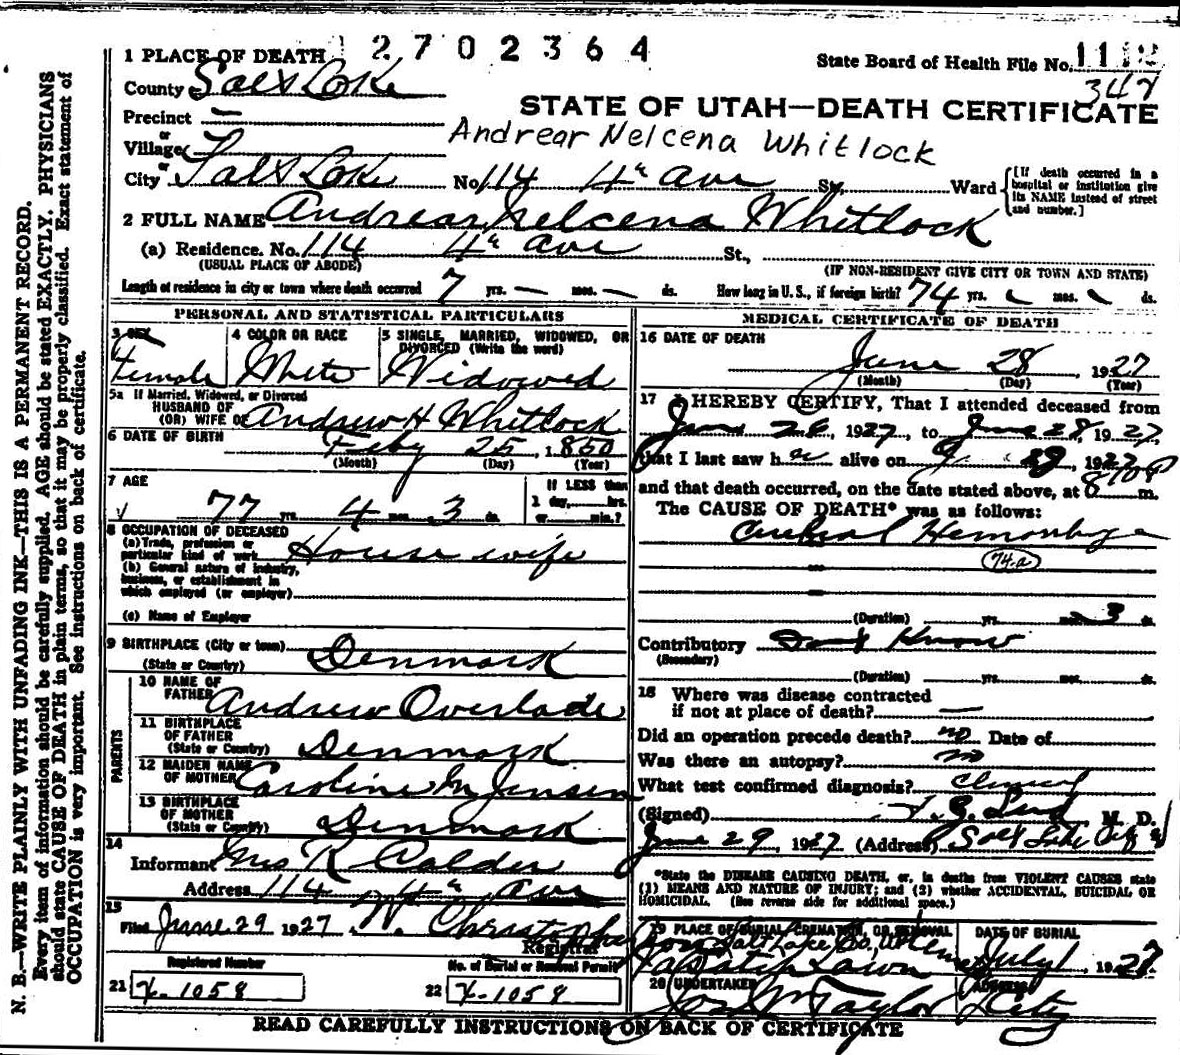 1 PLACE OF DEATH 2702364
State Board of Health File No. 1112
347
County Salt Lake
STATE OF UTAH—DEATH CERTIFICATE
Precinct —
Andrear Nelcena Whitlock
or
Village
or
City Salt Lake No. 114 4th Ave St., Ward
[If death occurred in a hospital or institution give its NAME instead of street and number.]
2 FULL NAME Andrear Nelcena Whitlock
(a) Residence. No. 114 4th Ave St.,
(USUAL PLACE OF ABODE) (IF NON-RESIDENT GIVE CITY OR TOWN AND STATE)
Length of residence in city or town where death occurred 7 yrs. — mos. — ds. How long in U. S., if foreign birth? 74 yrs. mos. ds.
PERSONAL AND STATISTICAL PARTICULARS
3 SEX
Female
4 COLOR OR RACE
White
5 SINGLE, MARRIED, WIDOWED, OR
DIVORCED (Write the word)
Widowed
5a If Married, Widowed, or Divorced
HUSBAND OF
(OR) WIFE OF Andrew H Whitlock
6 DATE OF BIRTH Feby 25, 1850
(Month) (Day) (Year)
7 AGE
77 yrs. 4 mos. 3 ds.
If LESS than
1 day, hrs.
or min.?
8 OCCUPATION OF DECEASED
(a) Trade, profession or
particular kind of work House wife
(b) General nature of industry,
business, or establishment in
which employed (or employer)
(c) Name of Employer
9 BIRTHPLACE (City or town)
(State or Country) Denmark
PARENTS
10 NAME OF
FATHER Andrew Overlade
11 BIRTHPLACE
OF FATHER
(State or Country) Denmark
12 MAIDEN NAME
OF MOTHER Caroline M Jensen
13 BIRTHPLACE
OF MOTHER
(State or Country) Denmark
14
Informant Mrs R Calder
Address 114 4th Ave
15
Filed June 29 1927 W. Christopher
Registrar
Registered Number No. of Burial or Removal Permit
21 X-1058 22 X-1058
MEDICAL CERTIFICATE OF DEATH
16 DATE OF DEATH
June 28, 1927
(Month) (Day) (Year)
17 I HEREBY CERTIFY, That I attended deceased from
June 26, 1927, to June 28, 1927,
that I last saw h er alive on 1927
and that death occurred, on the date stated above, at m.
The CAUSE OF DEATH* was as follows:
Cerebral Hemorrhage
74a
(Duration) yrs. mos. 3 ds.
Contributory Dont Know
(Secondary)
(Duration) yrs. mos. ds.
18 Where was disease contracted
if not at place of death? —
Did an operation precede death? no Date of
Was there an autopsy? no
What test confirmed diagnosis? Clinical
(Signed) M. D.
June 29, 1927 (Address) Salt Lake City
*State the DISEASE CAUSING DEATH, or, in deaths from VIOLENT CAUSES state
(1) MEANS AND NATURE OF INJURY; and (2) whether ACCIDENTAL, SUICIDAL OR
HOMICIDAL. (See reverse side for additional space.)
19 PLACE OF BURIAL CREMATION, OR REMOVAL
Salt Lake Co., Ut
Wasatch Lawn
DATE OF BURIAL
July 1 1927
20 UNDERTAKER
Jos Wm Taylor
ADDRESS
City
READ CAREFULLY INSTRUCTIONS ON BACK OF CERTIFICATE
N. B.—WRITE PLAINLY WITH UNFADING INK—THIS IS A PERMANENT RECORD.
Every item of information should be carefully supplied. AGE should be stated EXACTLY. PHYSICIANS
should state CAUSE OF DEATH in plain terms, so that it may be properly classified. Exact statement of
OCCUPATION is very important. See instructions on back of certificate.